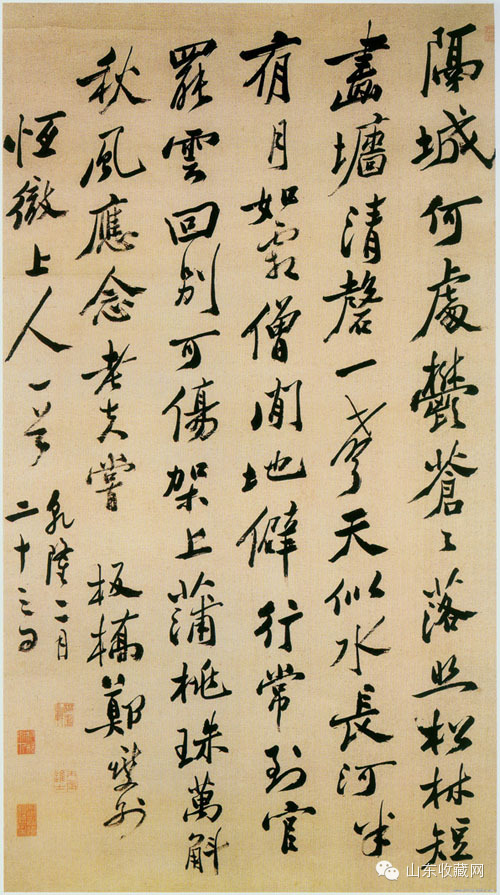 隔城何處鬱蒼々落照松林短
畫墻清磬一聲天似水長河半
有月如霜僧閒地僻行常到官
罷雲回別可傷架上蒲桃珠萬斛
秋風應念老夫嘗 板橋鄭燮
恒徹上人一
乾隆二月
二十三日
山东收藏网